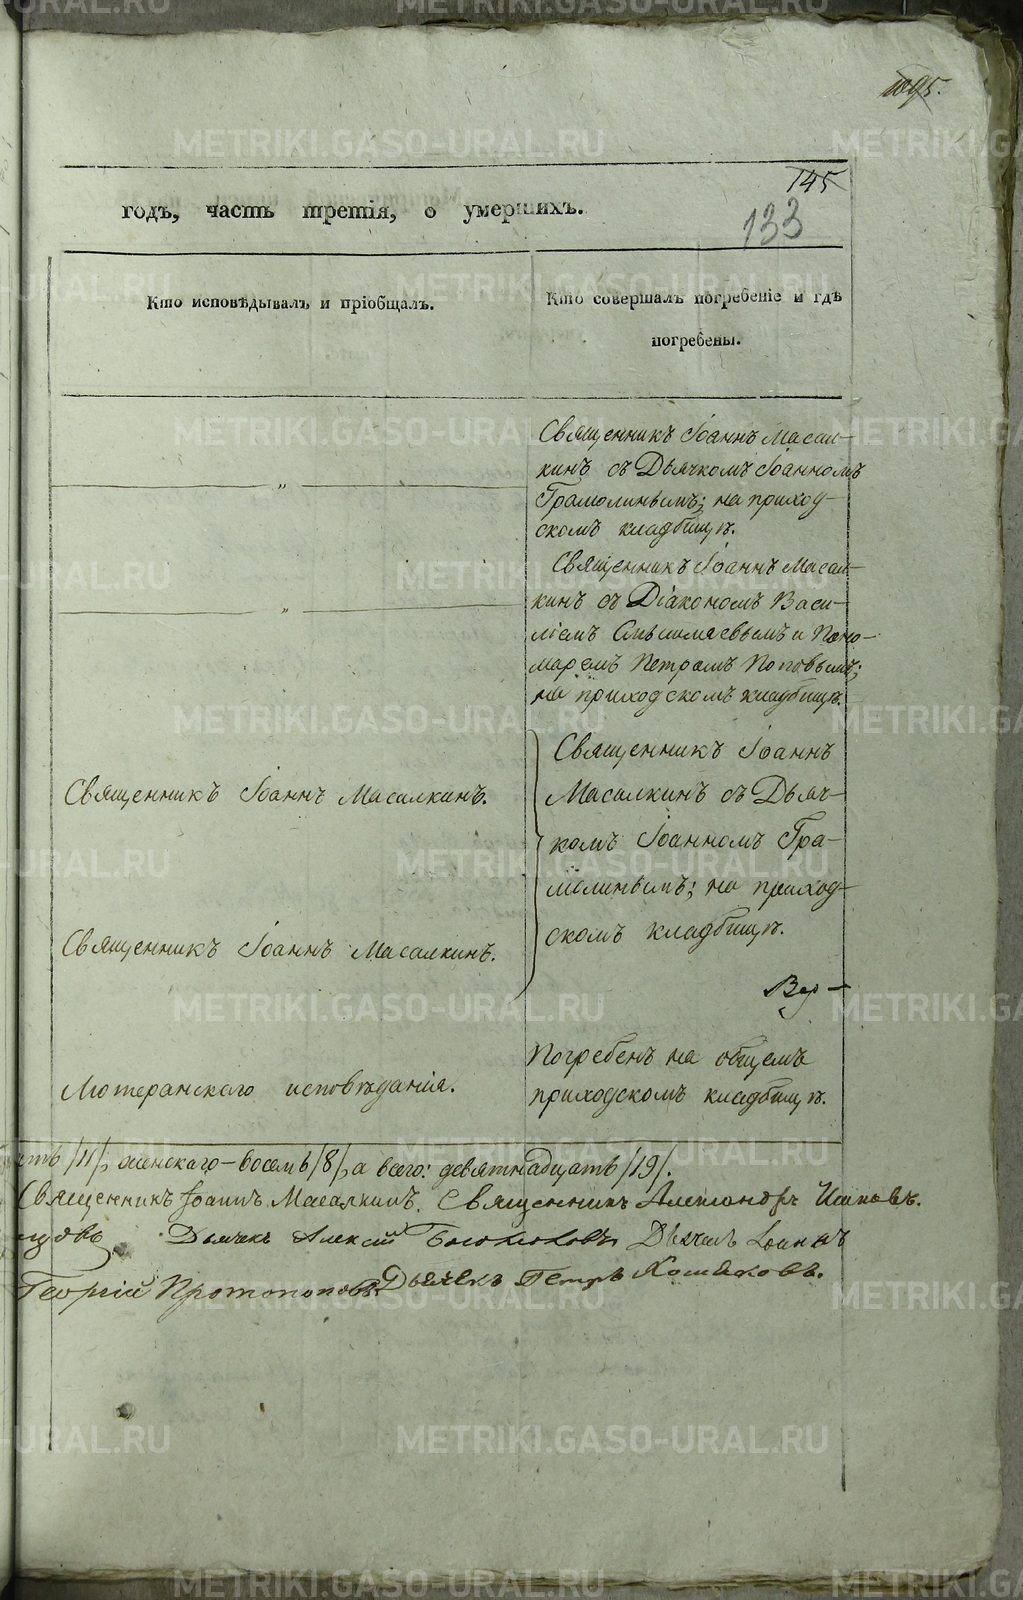 1095.
145
годъ, часть третія, о умершихъ.
133
Кто исповѣдывалъ и пріобщалъ.
Кто совершалъ погребеніе и гдѣ
погребены.
Священникъ Іоаннъ Масал-
кинъ съ Дьячкомъ Іоанномъ
Грамолинымъ; на приход-
скомъ кладбищѣ.
Священникъ Іоаннъ Масал-
кинъ съ Діакономъ Васи-
ліемъ и Поно-
маремъ Петромъ Поповымъ;
на приходскомъ кладбищѣ.
Священникъ Іоаннъ
Масалкинъ съ Дьяч-
комъ Іоанномъ Гра-
молинымъ; на приход-
скомъ кладбищѣ.
Священникъ Іоаннъ Масалкинъ.
Священникъ Іоаннъ Масалкинъ.
Вер-
Погребенъ на общемъ
приходскомъ кладбищѣ.
Лютеранскаго исповѣданія.
сть /11/, женскаго - восемь /8/, а всего: девятнадцать /19/.
Священникъ Іоаннъ Масалкинъ. Священникъ Александръ
Дьячекъ Алексій Дьячекъ Іоаннъ
Георгій Протопоповъ. Дьячекъ Петръ Хомяковъ.
METRIKI.GASO-URAL.RU